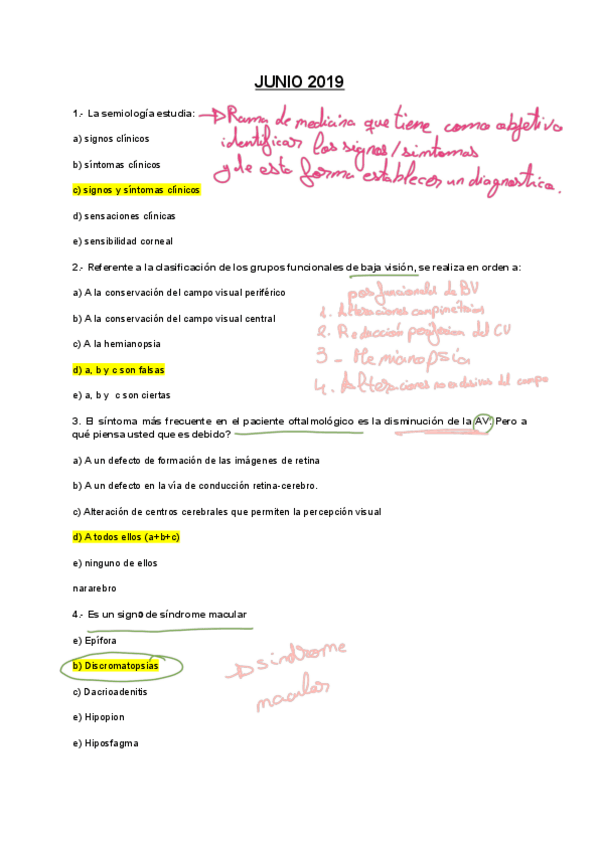 JUNIO 2019
1.- La semiología estudia: → Rama de medicina que tiene como objetivo
identificar los signos/sintomas
y de esta forma establecer un diagnostico.
a) signos clínicos
b) síntomas clínicos
c) signos y síntomas clínicos
d) sensaciones clínicas
e) sensibilidad corneal
2.- Referente a la clasificación de los grupos funcionales de baja visión, se realiza en orden a:
a) A la conservación del campo visual periférico
b) A la conservación del campo visual central
c) A la hemianopsia
d) a, b y c son falsas
e) a, b y c son ciertas
funcionales de BV
1. Alteraciones
2. Reducción del CV
3 - Hemianopsia
4. Alteraciones del campo
3. El síntoma más frecuente en el paciente oftalmológico es la disminución de la AV. Pero a
qué piensa usted que es debido?
a) A un defecto de formación de las imágenes de retina
b) A un defecto en la vía de conducción retina-cerebro.
c) Alteración de centros cerebrales que permiten la percepción visual
d) A todos ellos (a+b+c)
e) ninguno de ellos
nararebro
4.- Es un signo de síndrome macular
e) Epífora
b) Discromatopsías
c) Dacrioadenitis
e) Hipopion
e) Hiposfagma
→ sindrome
macular